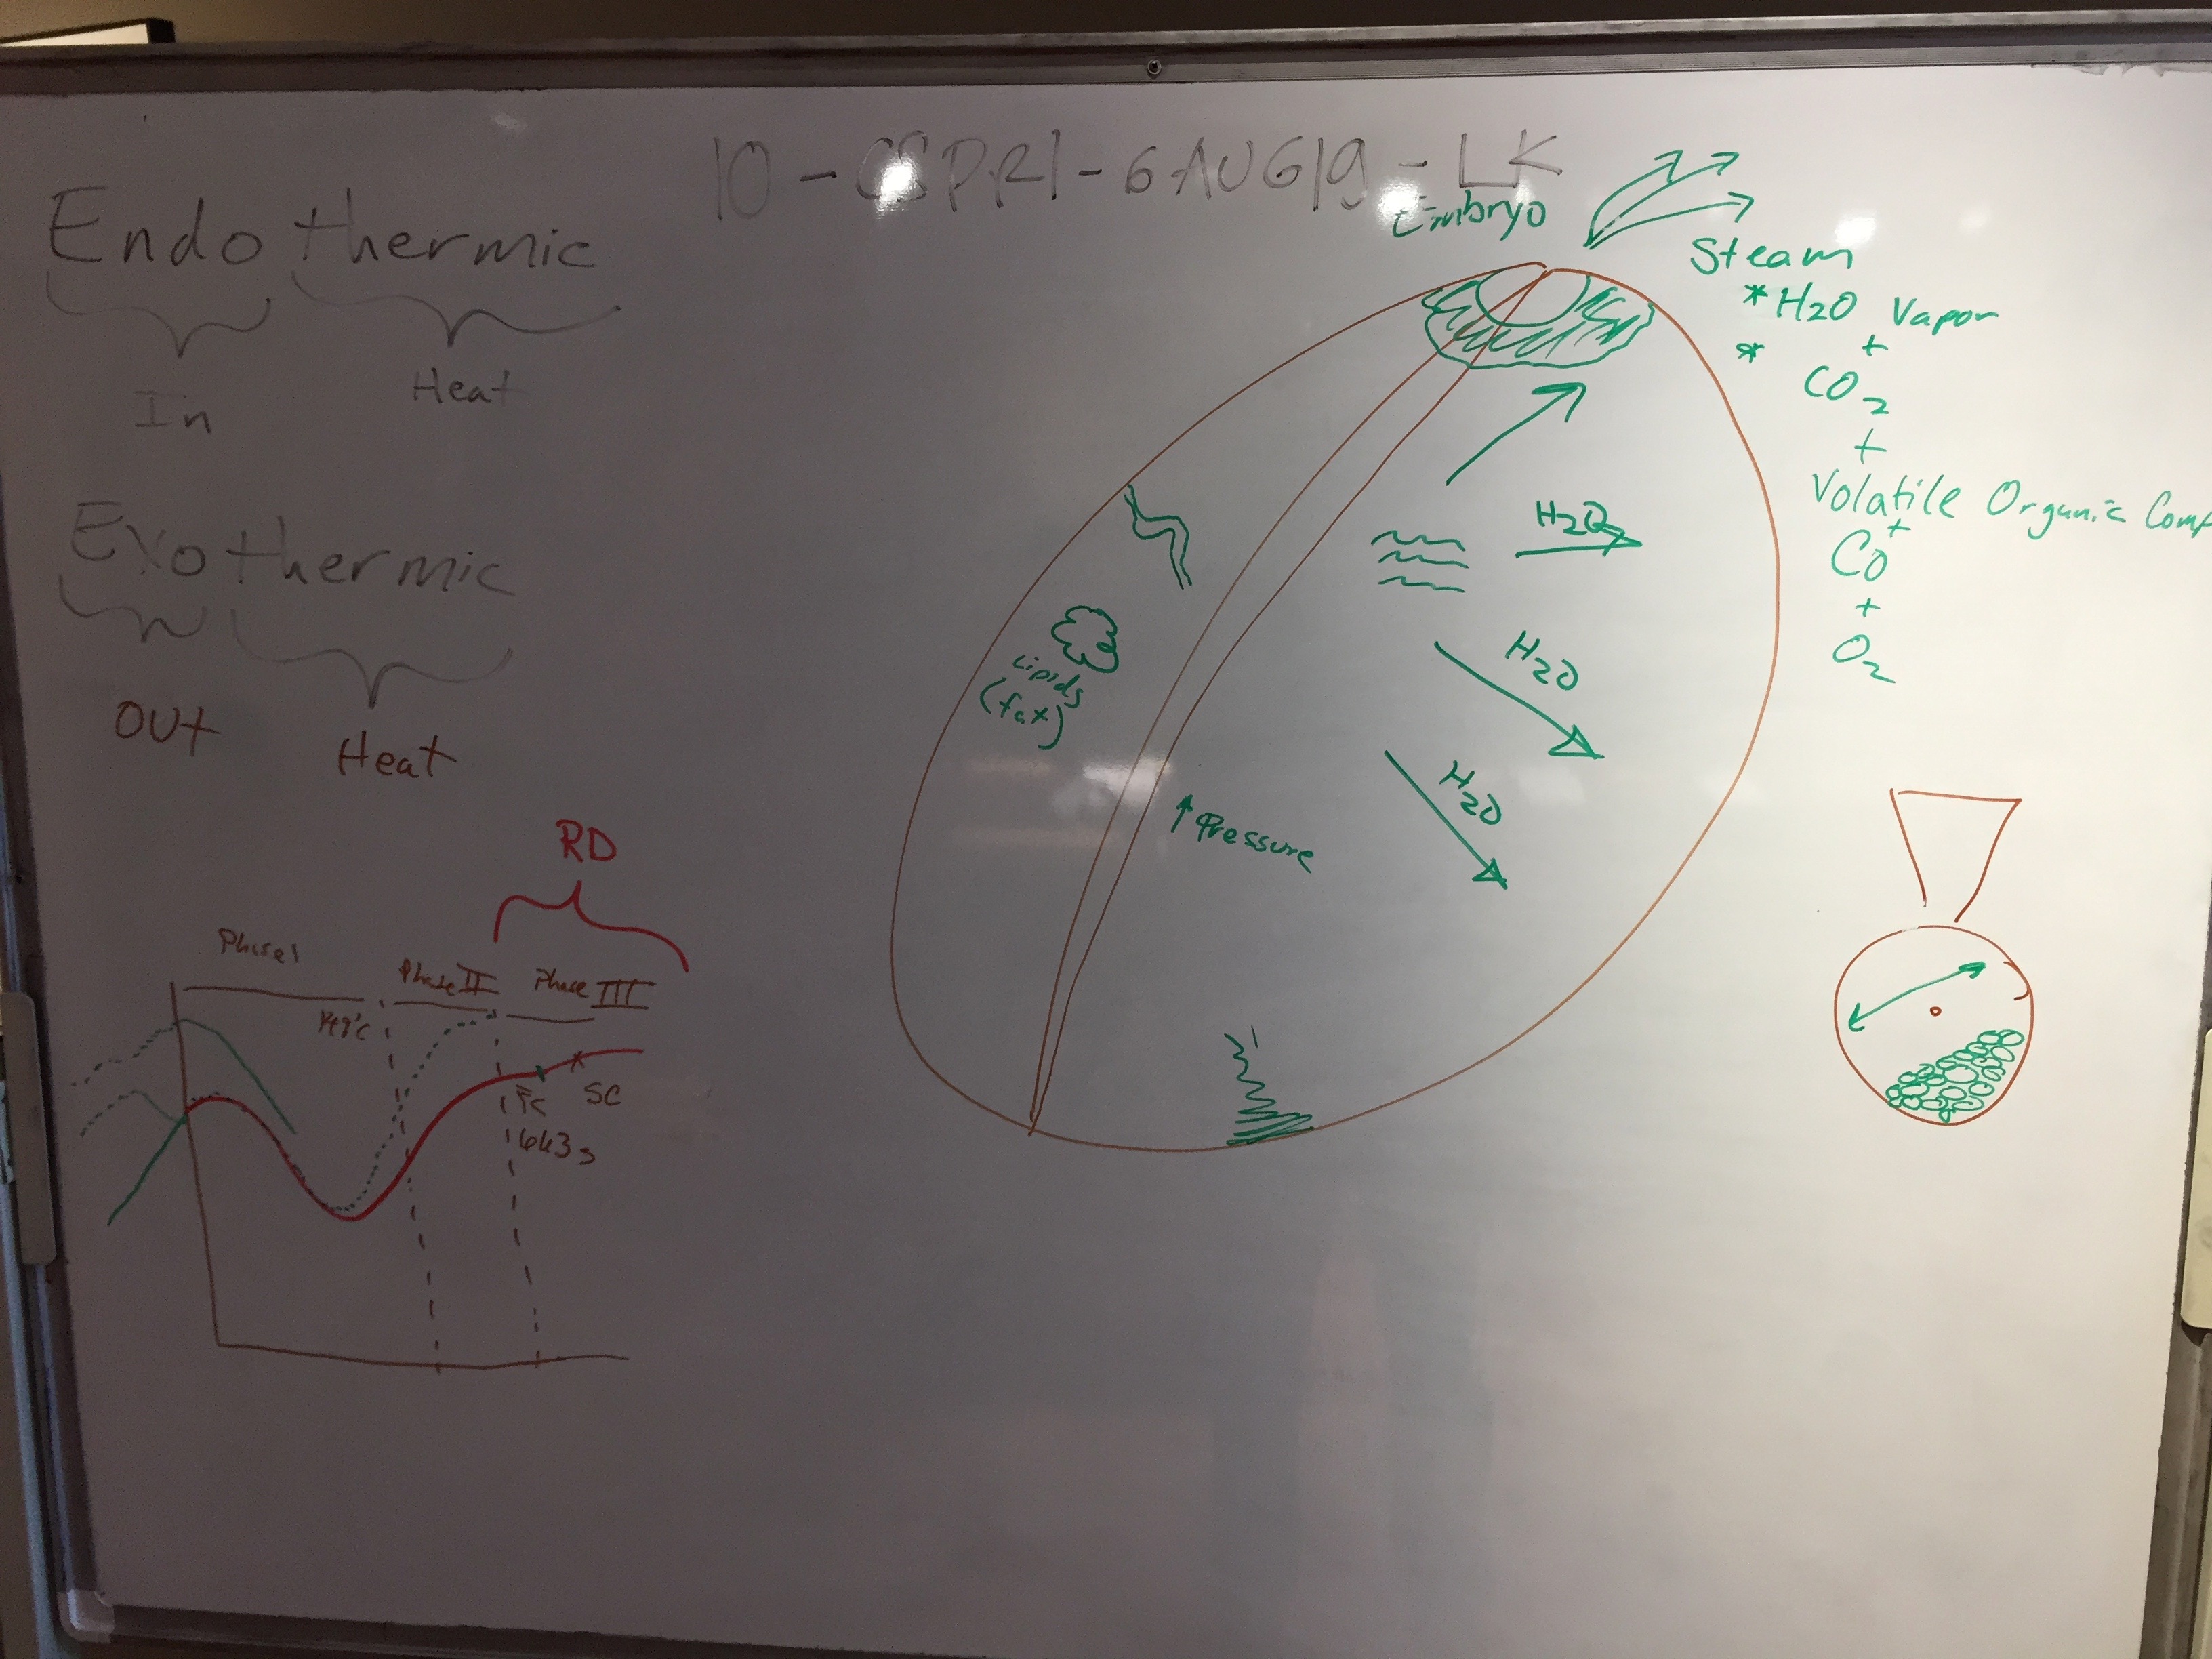 10 - CSPR1 - 6AUG19 - LK
Endothermic
In
Heat
Exothermic
Out
Heat
RD
Phase 1
Phase II
Phase III
149°c
Fc
SC
Embryo
Steam
* H2O Vapor
*
+
CO2
+
Volatile Organic Comp
+
CO
+
O2
H2O
H2O
H2O
Lipids
(fax)
↑ Pressure